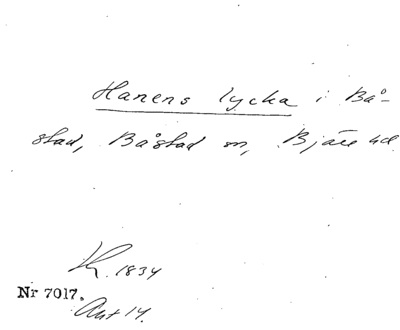 Hanens lycka i Bå-
stad, Båstad sn, Bjäre hd
K. 1834
Nr 7017.
Akt 14.